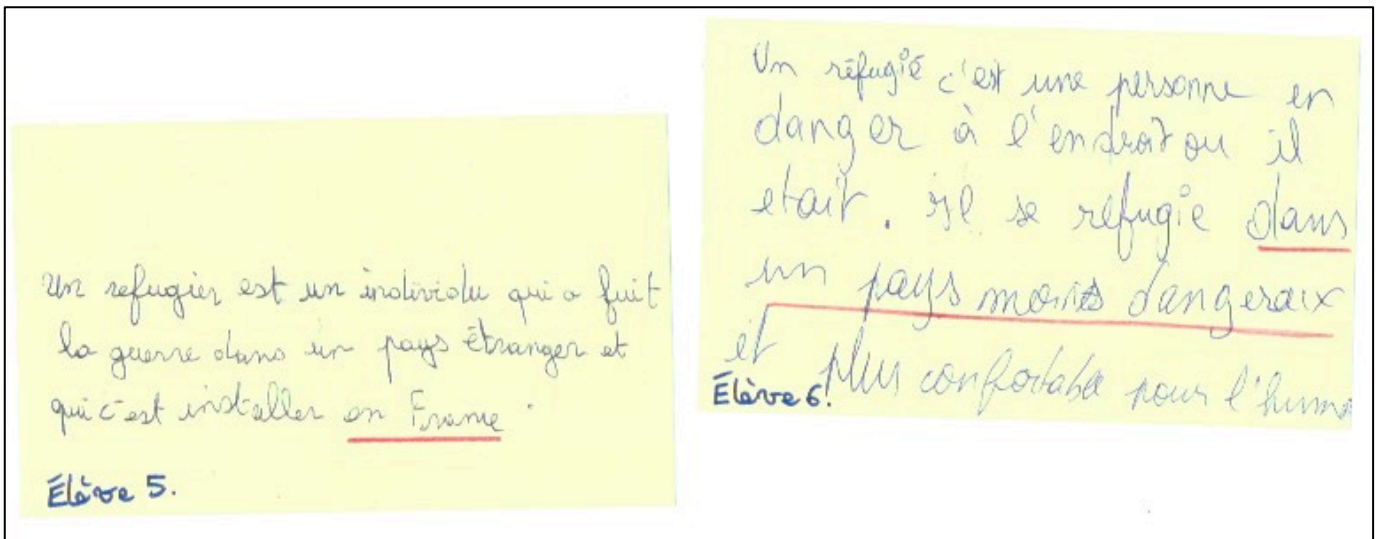 Un refugier est un individu qui a fuit
la guerre dans un pays étranger et
qui c'est installer en France.
Élève 5.
Un réfugié c'est une personne en
danger à l'endroit ou il
etait. Il se refugie dans
un pays moins dangeraix
et plus confortable pour l'huma
Élève 6.